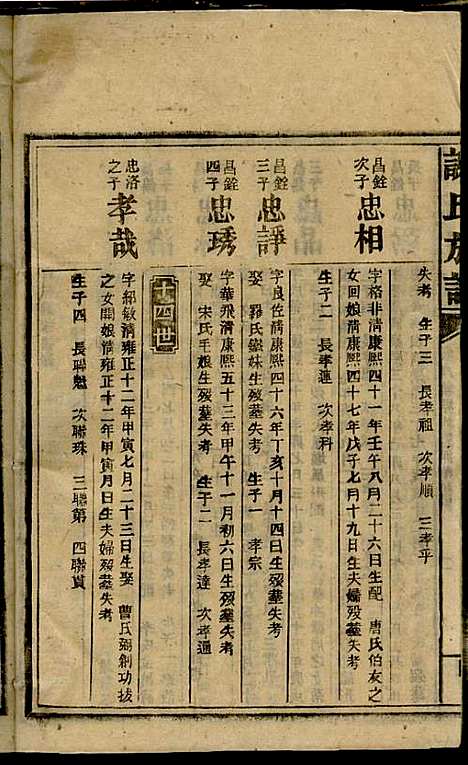 氏族譜
失考 生子三 長孝祖 次孝順 三孝平
昌銓次子 忠相
字格非清康熙四十一年壬午八月二十六日生配 唐氏伯友之
女回娘清康熙四十七年戊子七月十九日生夫婦歿墓失考
生子二 長孝蓮 次孝科
昌銓三子 忠諍
字良佐清康熙四十六年丁亥十月十四日生歿墓失考
娶 羅氏鑑妹生歿墓失考 生子一 孝宗
昌銓四子 忠琇
字華飛清康熙五十三年甲午十一月初六日生歿墓失考
娶 宋氏毛娘生歿墓失考 生子二 長孝達 次孝通
十四世
忠洛之子 孝哉
字紹敏清雍正十二年甲寅七月二十三日生娶 曹氏弼創功拔
之女閏娘清雍正十二年甲寅月日生夫婦歿墓失考
生子四 長聯魁 次聯珠 三聯第 四聯貫